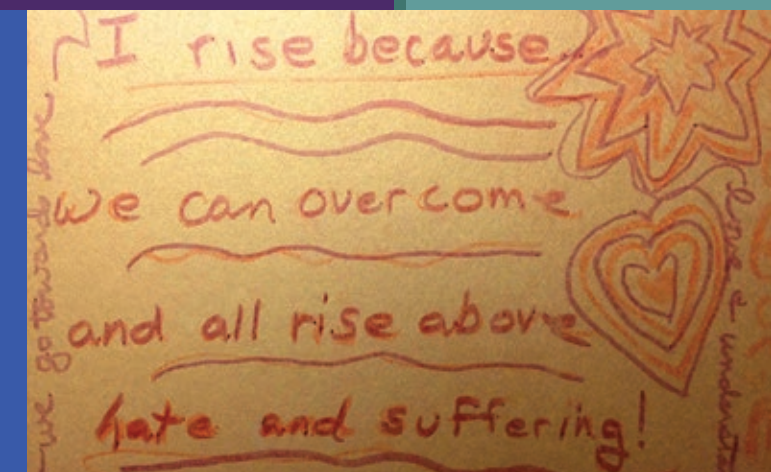 I rise because
we can overcome
and all rise above
hate and suffering!
we go towards love
love &